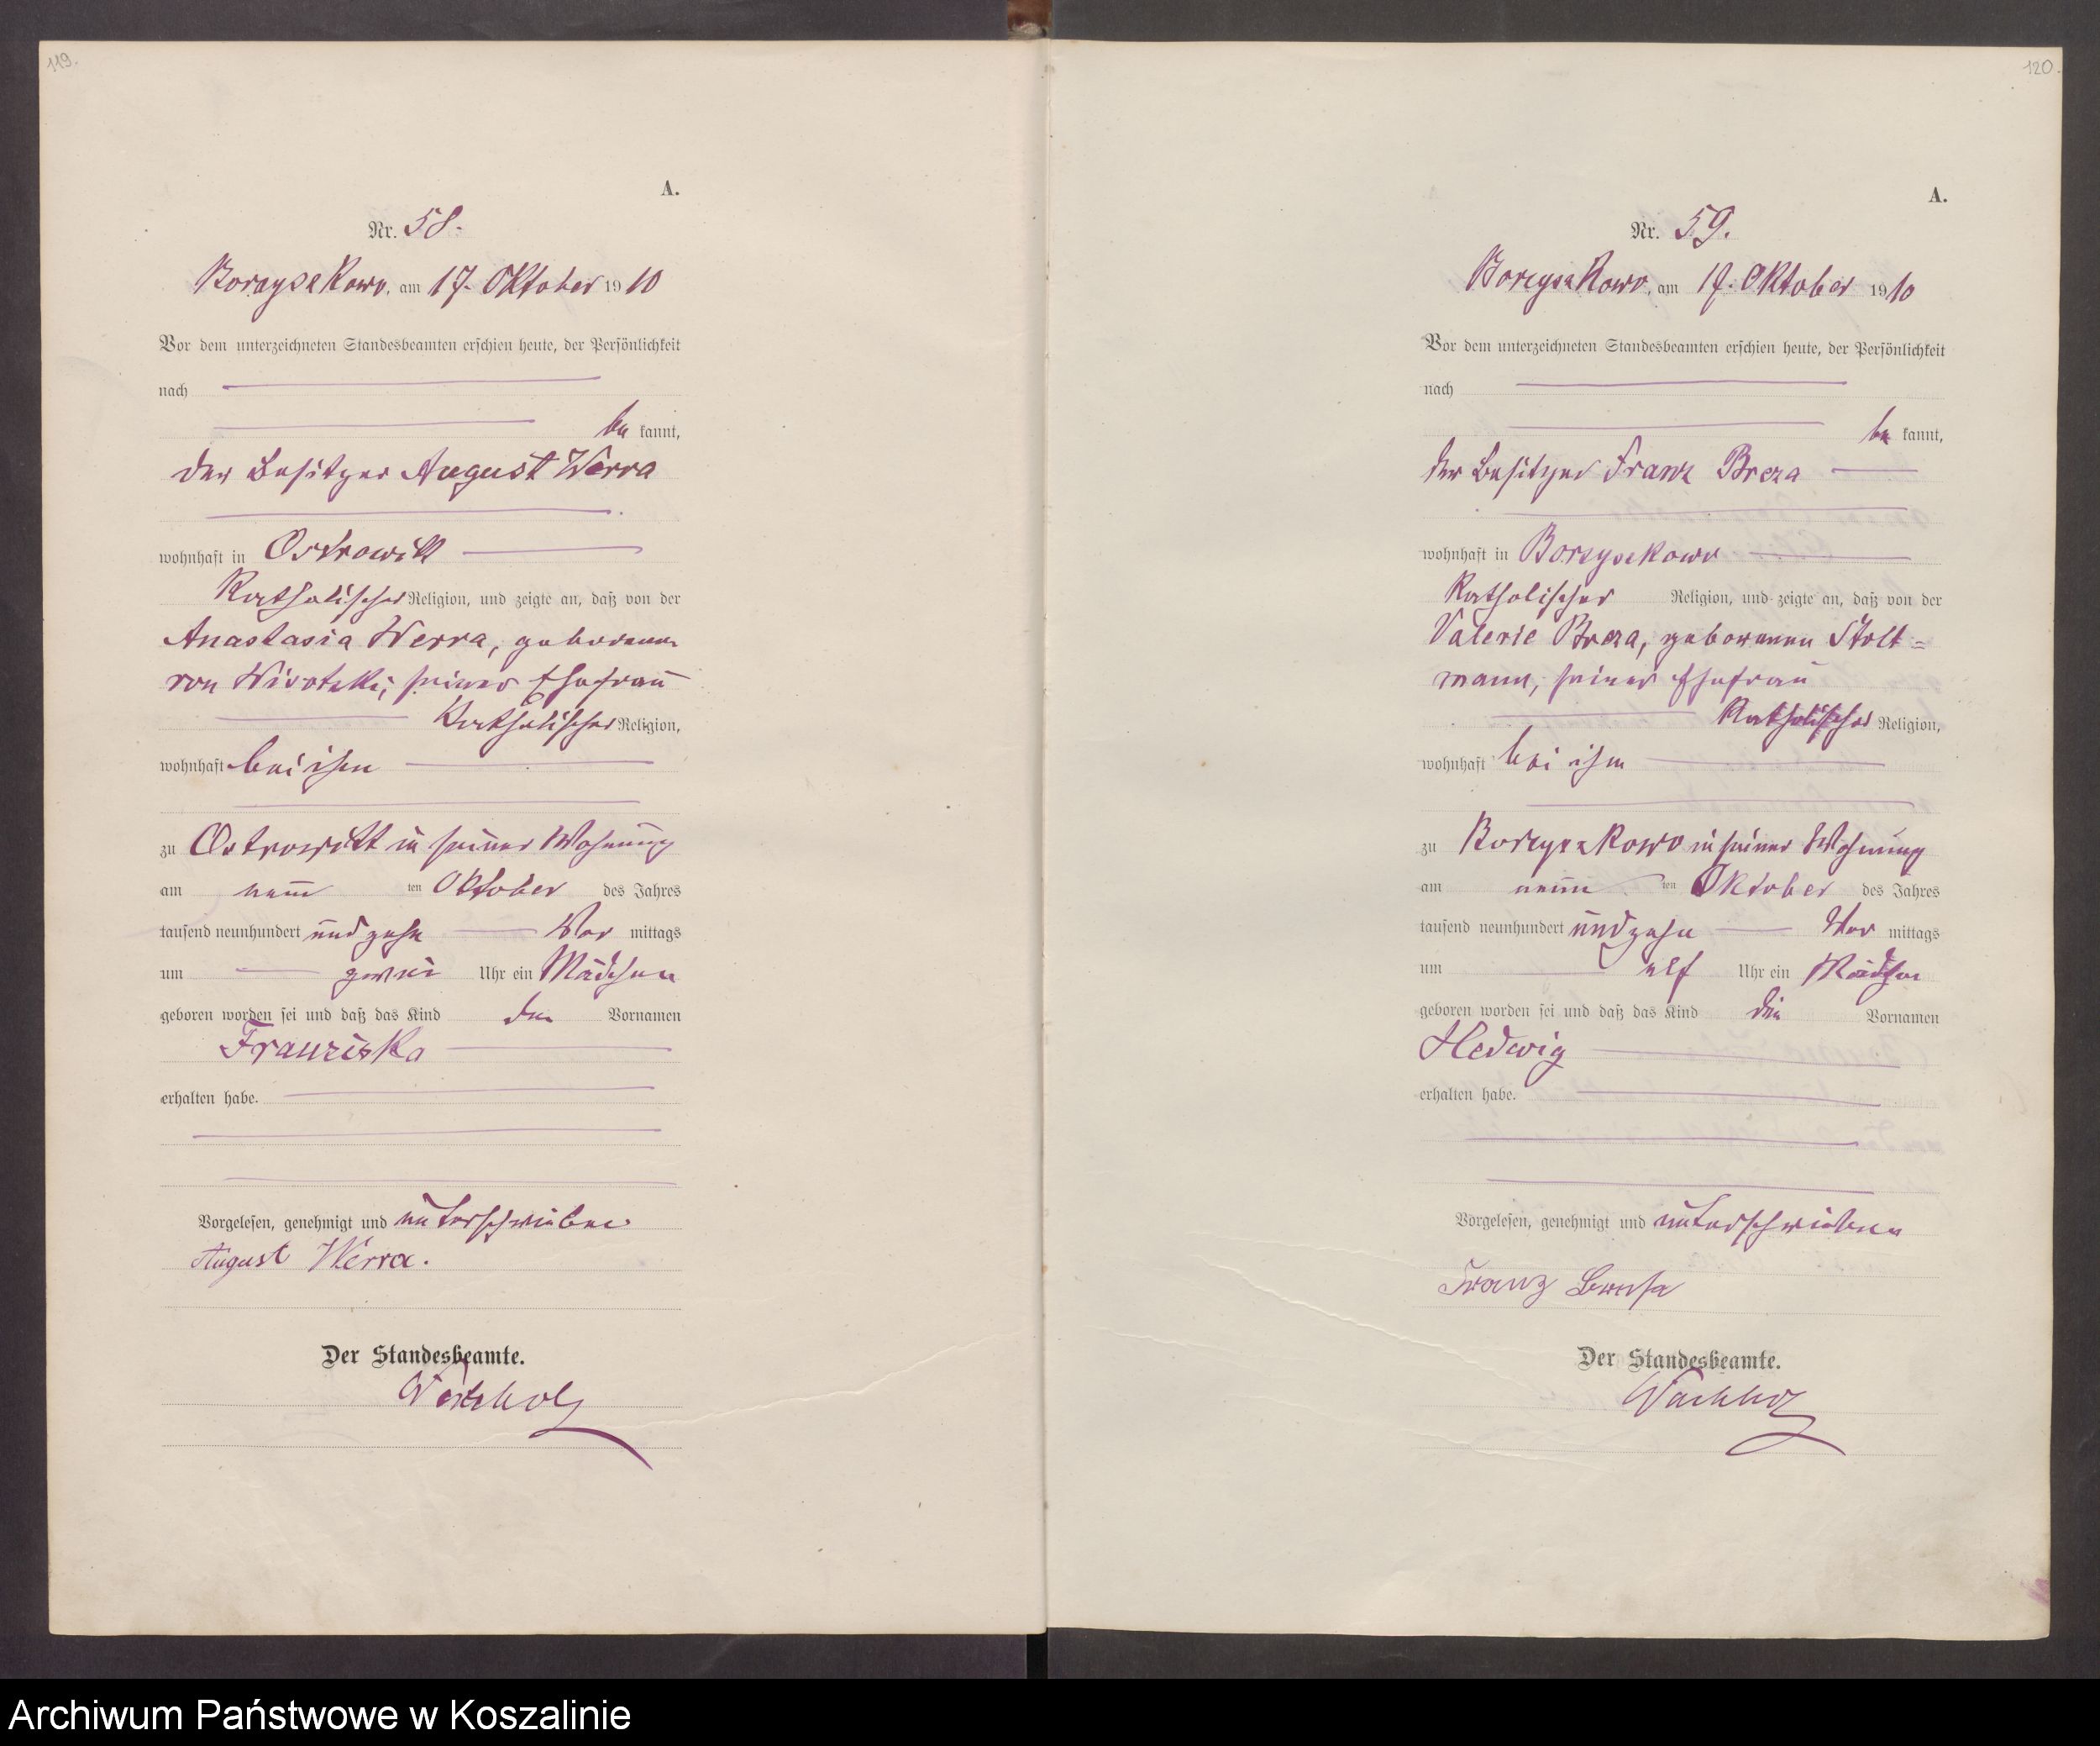 119.
A.
Nr. 58.
Borzyszkowo, am 17. Oktober 1910
Vor dem unterzeichneten Standesbeamten erschien heute, der Persönlichkeit
nach
be kannt,
der Besitzer August Werra
wohnhaft in Ostrowitt
Katholischer Religion, und zeigte an, daß von der
Anastasia Werra, geborenen
von seiner Ehefrau
Katholischer Religion,
wohnhaft bei ihm
zu Ostrowitt in seiner Wohnung
am neun ten Oktober des Jahres
tausend neunhundert und zehn Vor mittags
um zwei Uhr ein Mädchen
geboren worden sei und daß das Kind den Vornamen
Franziska
erhalten habe.
Vorgelesen, genehmigt und unterschrieben
August Werra.
Der Standesbeamte.
120.
A.
Nr. 59.
Borzyszkowo, am 17. Oktober 1910
Vor dem unterzeichneten Standesbeamten erschien heute, der Persönlichkeit
nach
be kannt,
der Besitzer Franz Breza
wohnhaft in Borzyszkowo
Katholischer Religion, und zeigte an, daß von der
Valerie Breza, geborenen Stolt=
mann, seiner Ehefrau
Katholischer Religion,
wohnhaft bei ihm
zu Borzyszkowo in seiner Wohnung
am neun ten Oktober des Jahres
tausend neunhundert und zehn Vor mittags
um elf Uhr ein Mädchen
geboren worden sei und daß das Kind die Vornamen
Hedwig
erhalten habe.
Vorgelesen, genehmigt und unterschrieben
Franz
Der Standesbeamte.
Archiwum Państwowe w Koszalinie